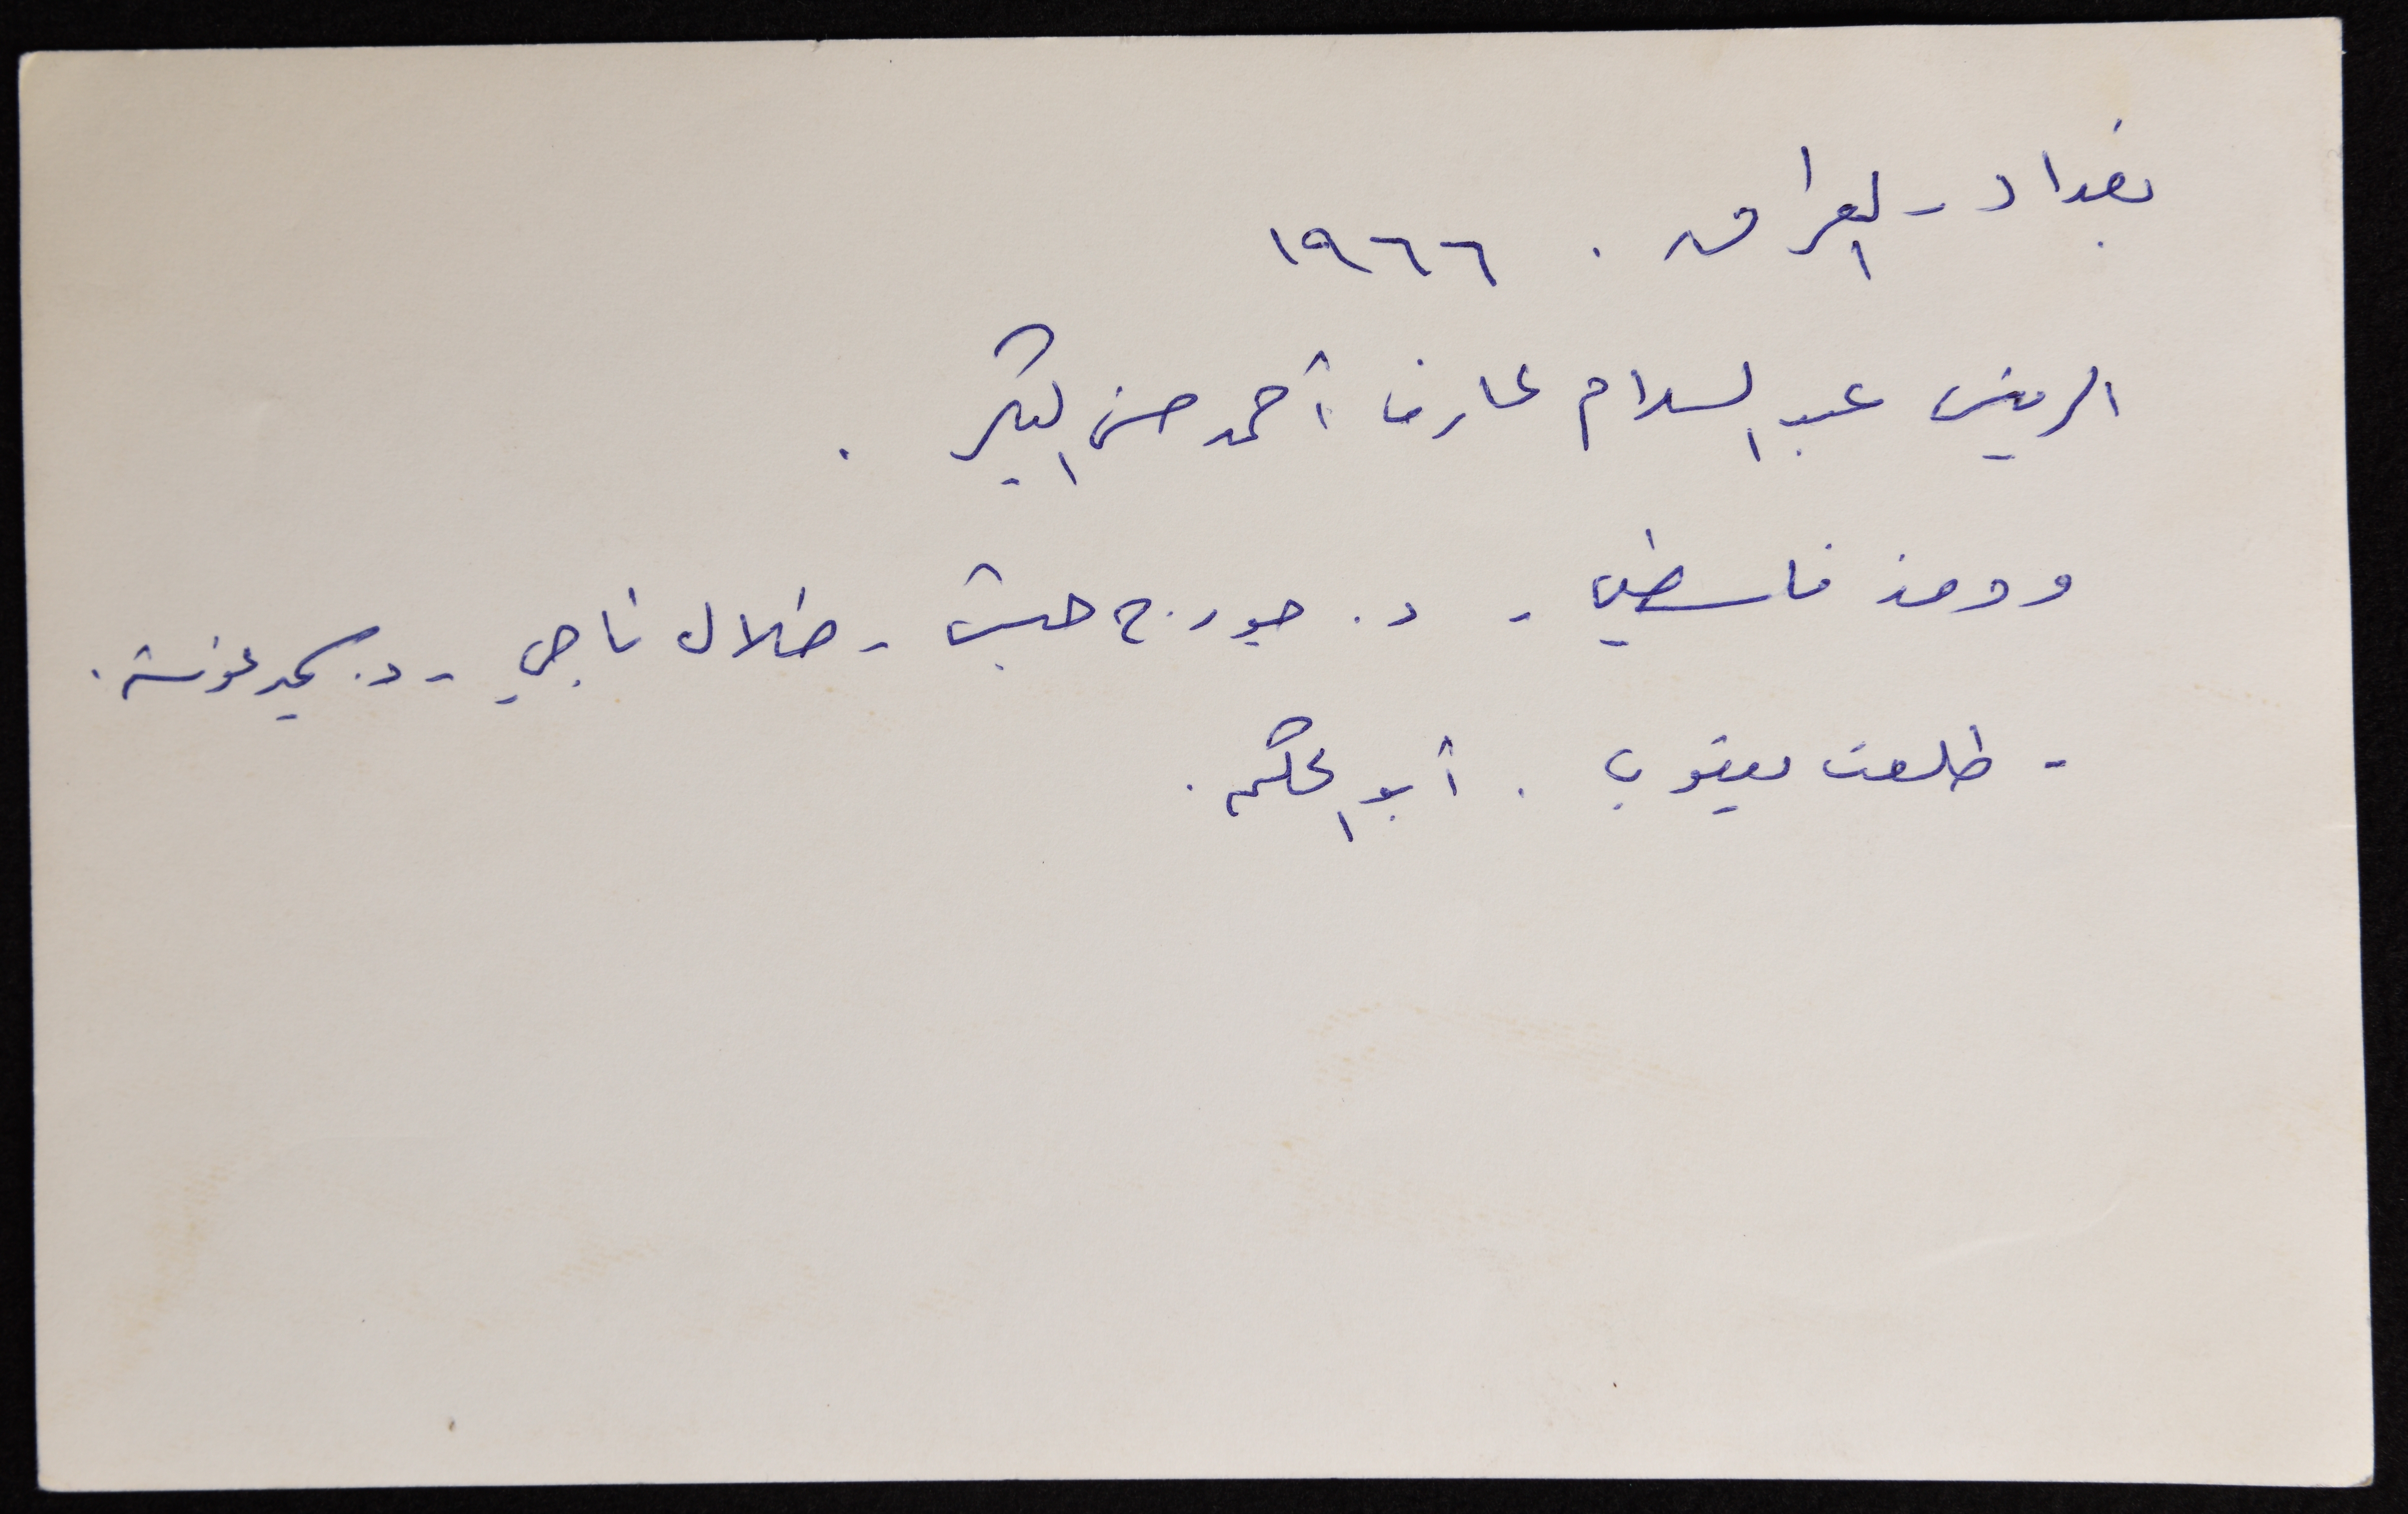 بغداد - العراق . ١٩٦٦
الرئيس عبد السلام عارف أحمد حسن البكر .
ووفد فلسطين - د. جورج حبش - طلال ناجي - د. سمير غوشة .
- طلعت يعقوب . أبو الحكم .